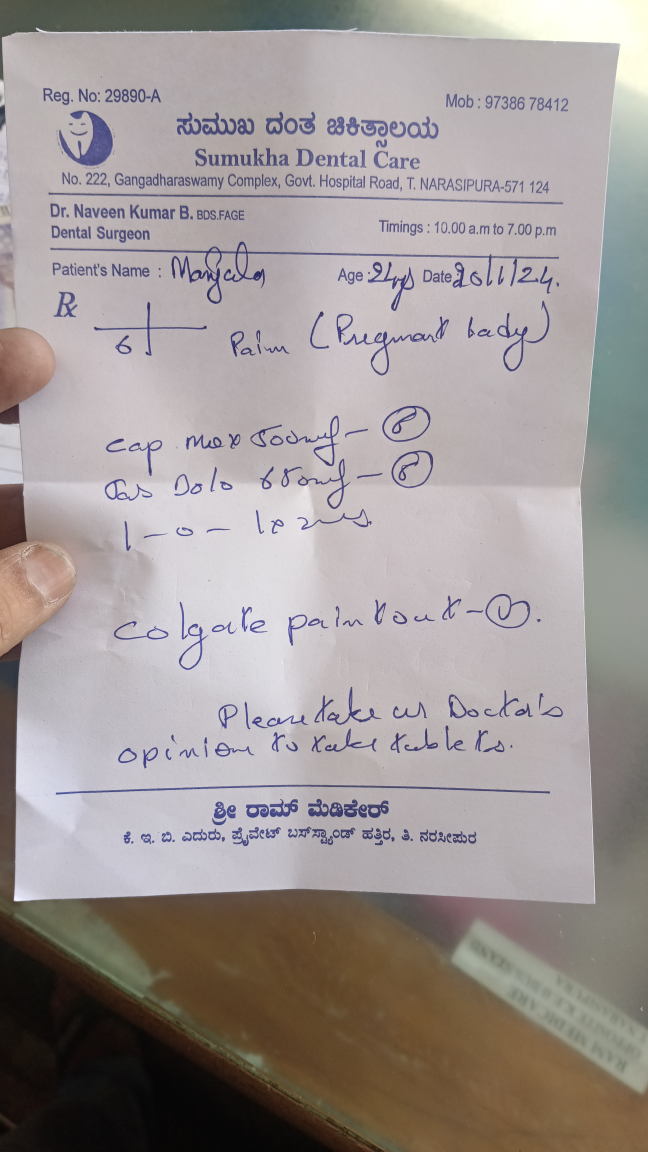 Reg. No: 29890-A
Mob : 97386 78412
ಸುಮುಖ ದಂತ ಚಿಕಿತ್ಸಾಲಯ
Sumukha Dental Care
No. 222, Gangadharaswamy Complex, Govt. Hospital Road, T. NARASIPURA-571 124
Dr. Naveen Kumar B. BDS.FAGE
Dental Surgeon
Timings : 10.00 a.m to 7.00 p.m
Patient's Name : Manjula Age : 24ys Date 20/1/24.
Rx
6 Pain (Pregnant lady)
cap mox 500mg -
Tab Dolo 650mg -
1-0-1
Colgate painkout -
Please take Doctor's
opinion to take tablets.
ಶ್ರೀ ರಾಮ್ ಮೆಡಿಕೇರ್
ಕೆ. ಇ. ಬಿ. ಎದುರು, ಪ್ರೈವೇಟ್ ಬಸ್‌ಸ್ಟ್ಯಾಂಡ್ ಹತ್ತಿರ, ತಿ. ನರಸೀಪುರ
RAM MEDICARE